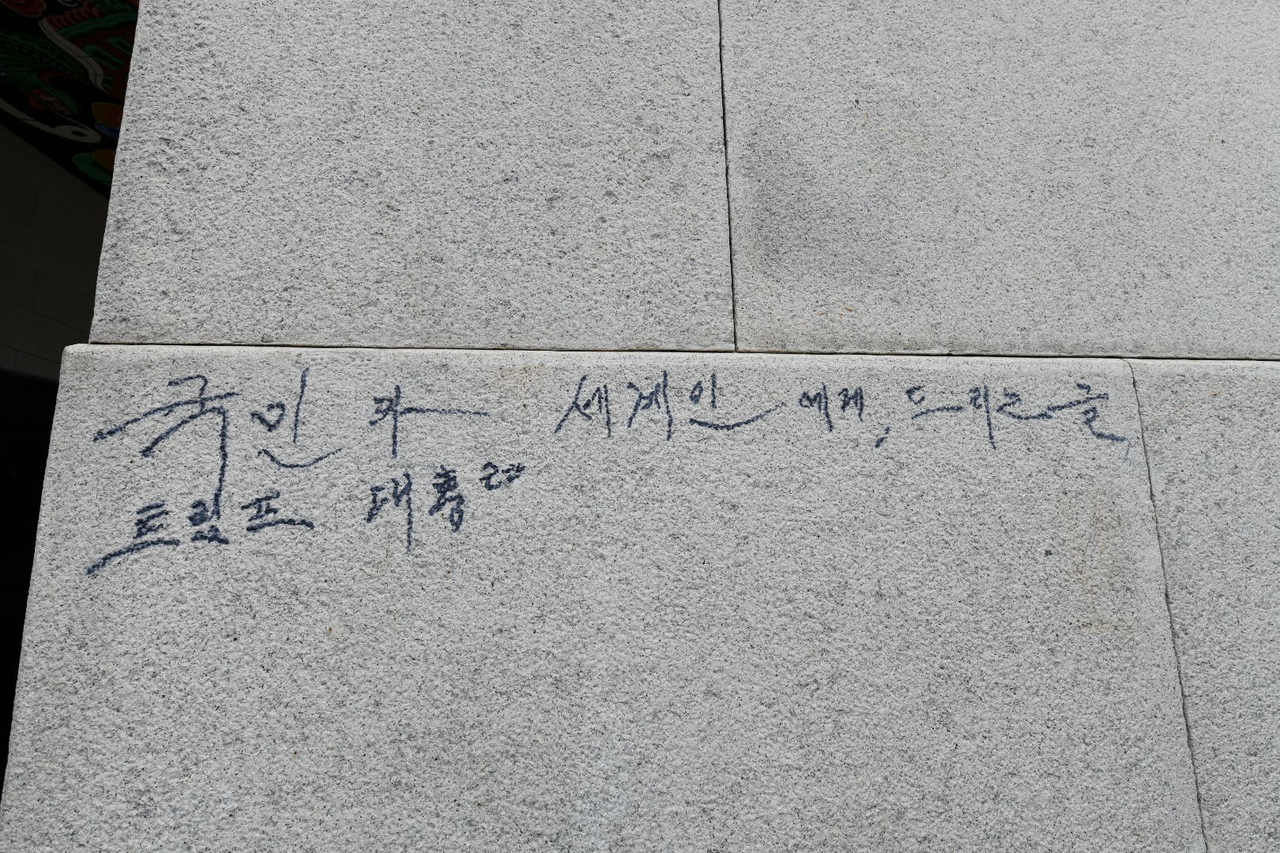 국민과 세계인에게, 드리는 글
트럼프 대통